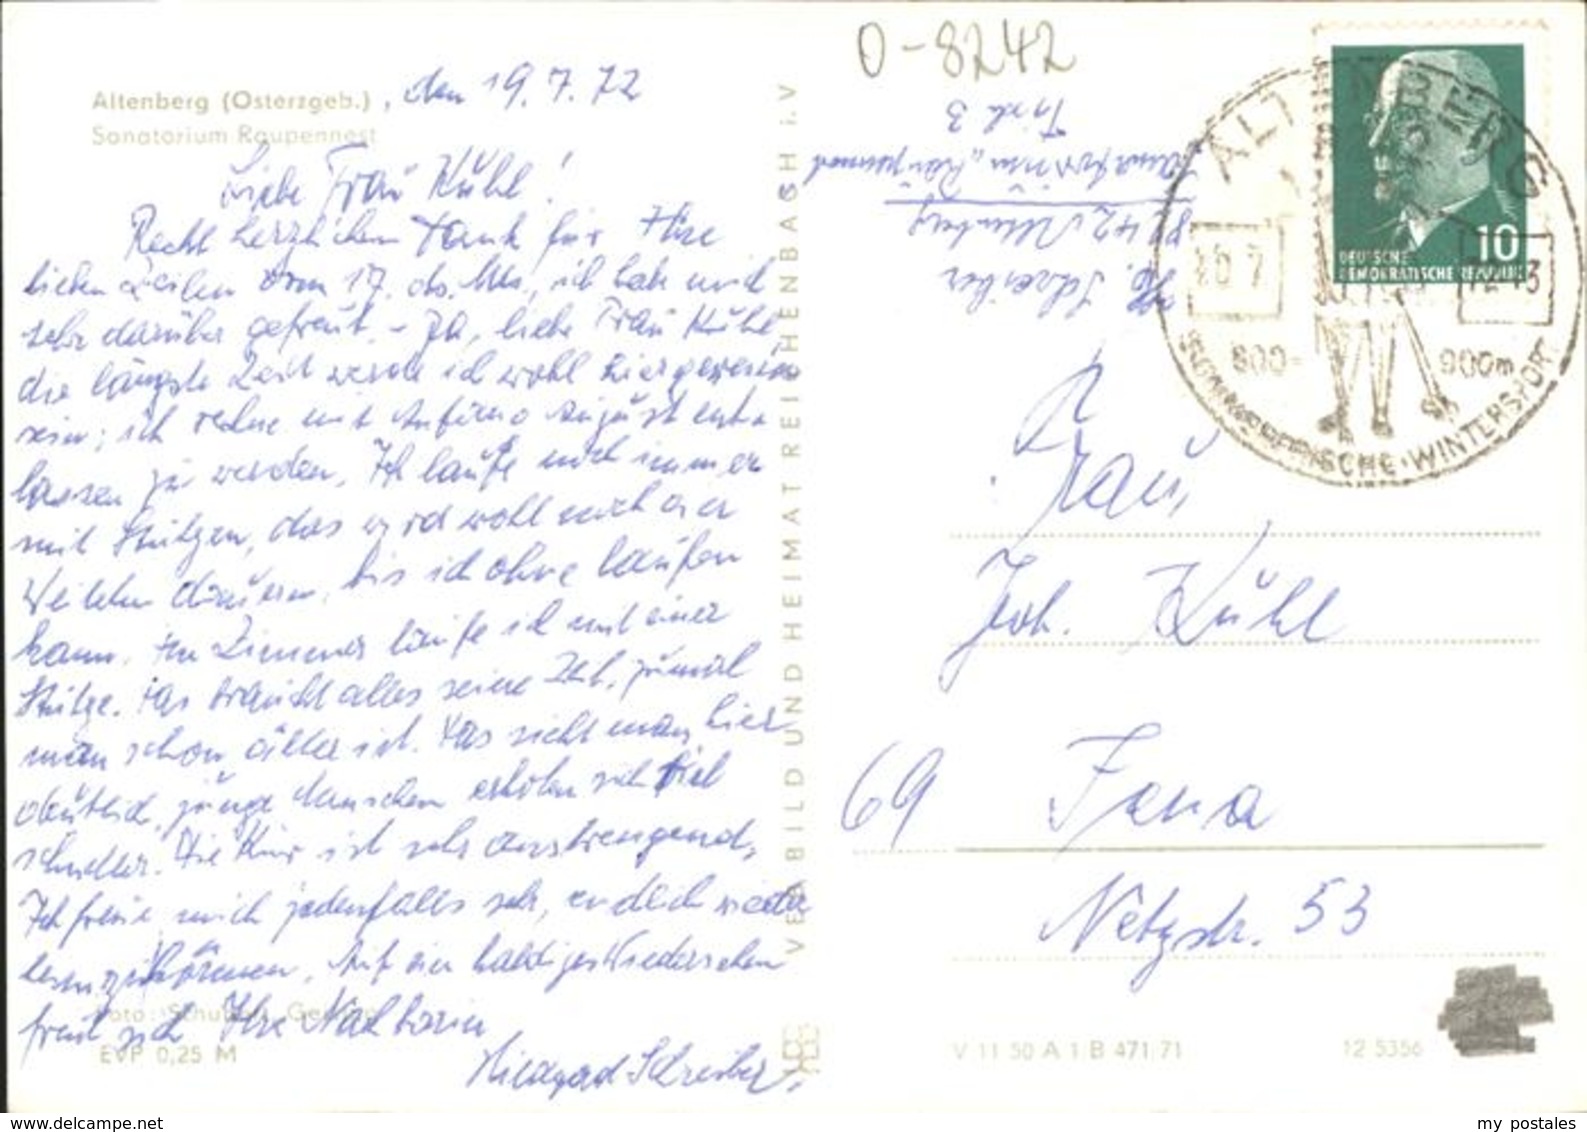 O-8242
Altenberg (Osterzgeb.)
Sanatorium Raupennest
, den 19.7.72
Liebe Frau Kühl!
Recht herzlichen Dank für Ihre
lieben Zeilen vom 17. ds. Mts., ich habe mich
sehr darüber gefreut. - Ja, liebe Frau Kühl
die längste Zeit werde ich wohl hier gewesen
sein; ich rechne mit Anfang August ent-
lassen zu werden. Ich laufe noch immer
mit Stützen, das wird wohl noch ein
Weilchen dauern, bis ich ohne laufen
kann. Im Zimmer laufe ich mit einer
Stütze. Das braucht alles seine Zeit, zumal
man schon älter ist. Das sieht man hier
deutlich, junge Menschen erholen sich viel
schneller. Die Kur ist sehr anstrengend,
Ich freue mich jedenfalls sehr, endlich wieder
heim zu können. Auf ein baldiges Wiedersehen
freut sich Ihre Nachbarin
Hildegard Schreiber,
Foto: Schubert,
EVP 0,25 M
VEB BILD UND HEIMAT REICHENBACH i. V
Schreiber
8242 Altenberg
Sanatorium „Raupennest
Tisch 3
ALTENBERG
10
DEUTSCHE
DEMOKRATISCHE REPUBLIK
20.7.
-13
800-
900m
SOMMERFRISCHE · WINTERSPORT
Frau
Joh. Kühl
69 Jena
Netzstr. 53
V 11 50 A 1 B 471/71
12 5356
www.delcampe.net
my postales